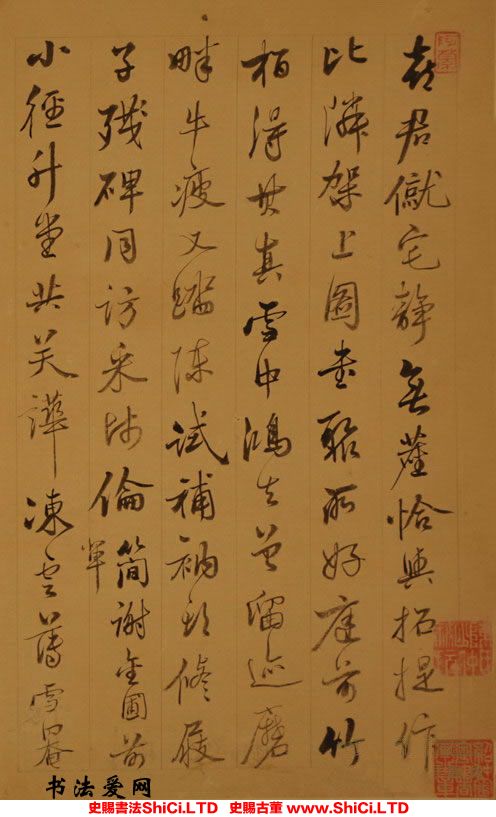 喜君僦宅静無塵恰與招提作
比隣架上圖書聊所好庭前竹
柏得其真雪中鴻去曾留迹磨
畔牛疲又踏陳試補衲頭修履
子殘碑同訪采
倫簡謝金圃前
輩
小徑升堂共笑譁凍雲薄雪
书法爱网
史賜書法ShiCi.LTD 史賜古董 www.ShiCi.LTD